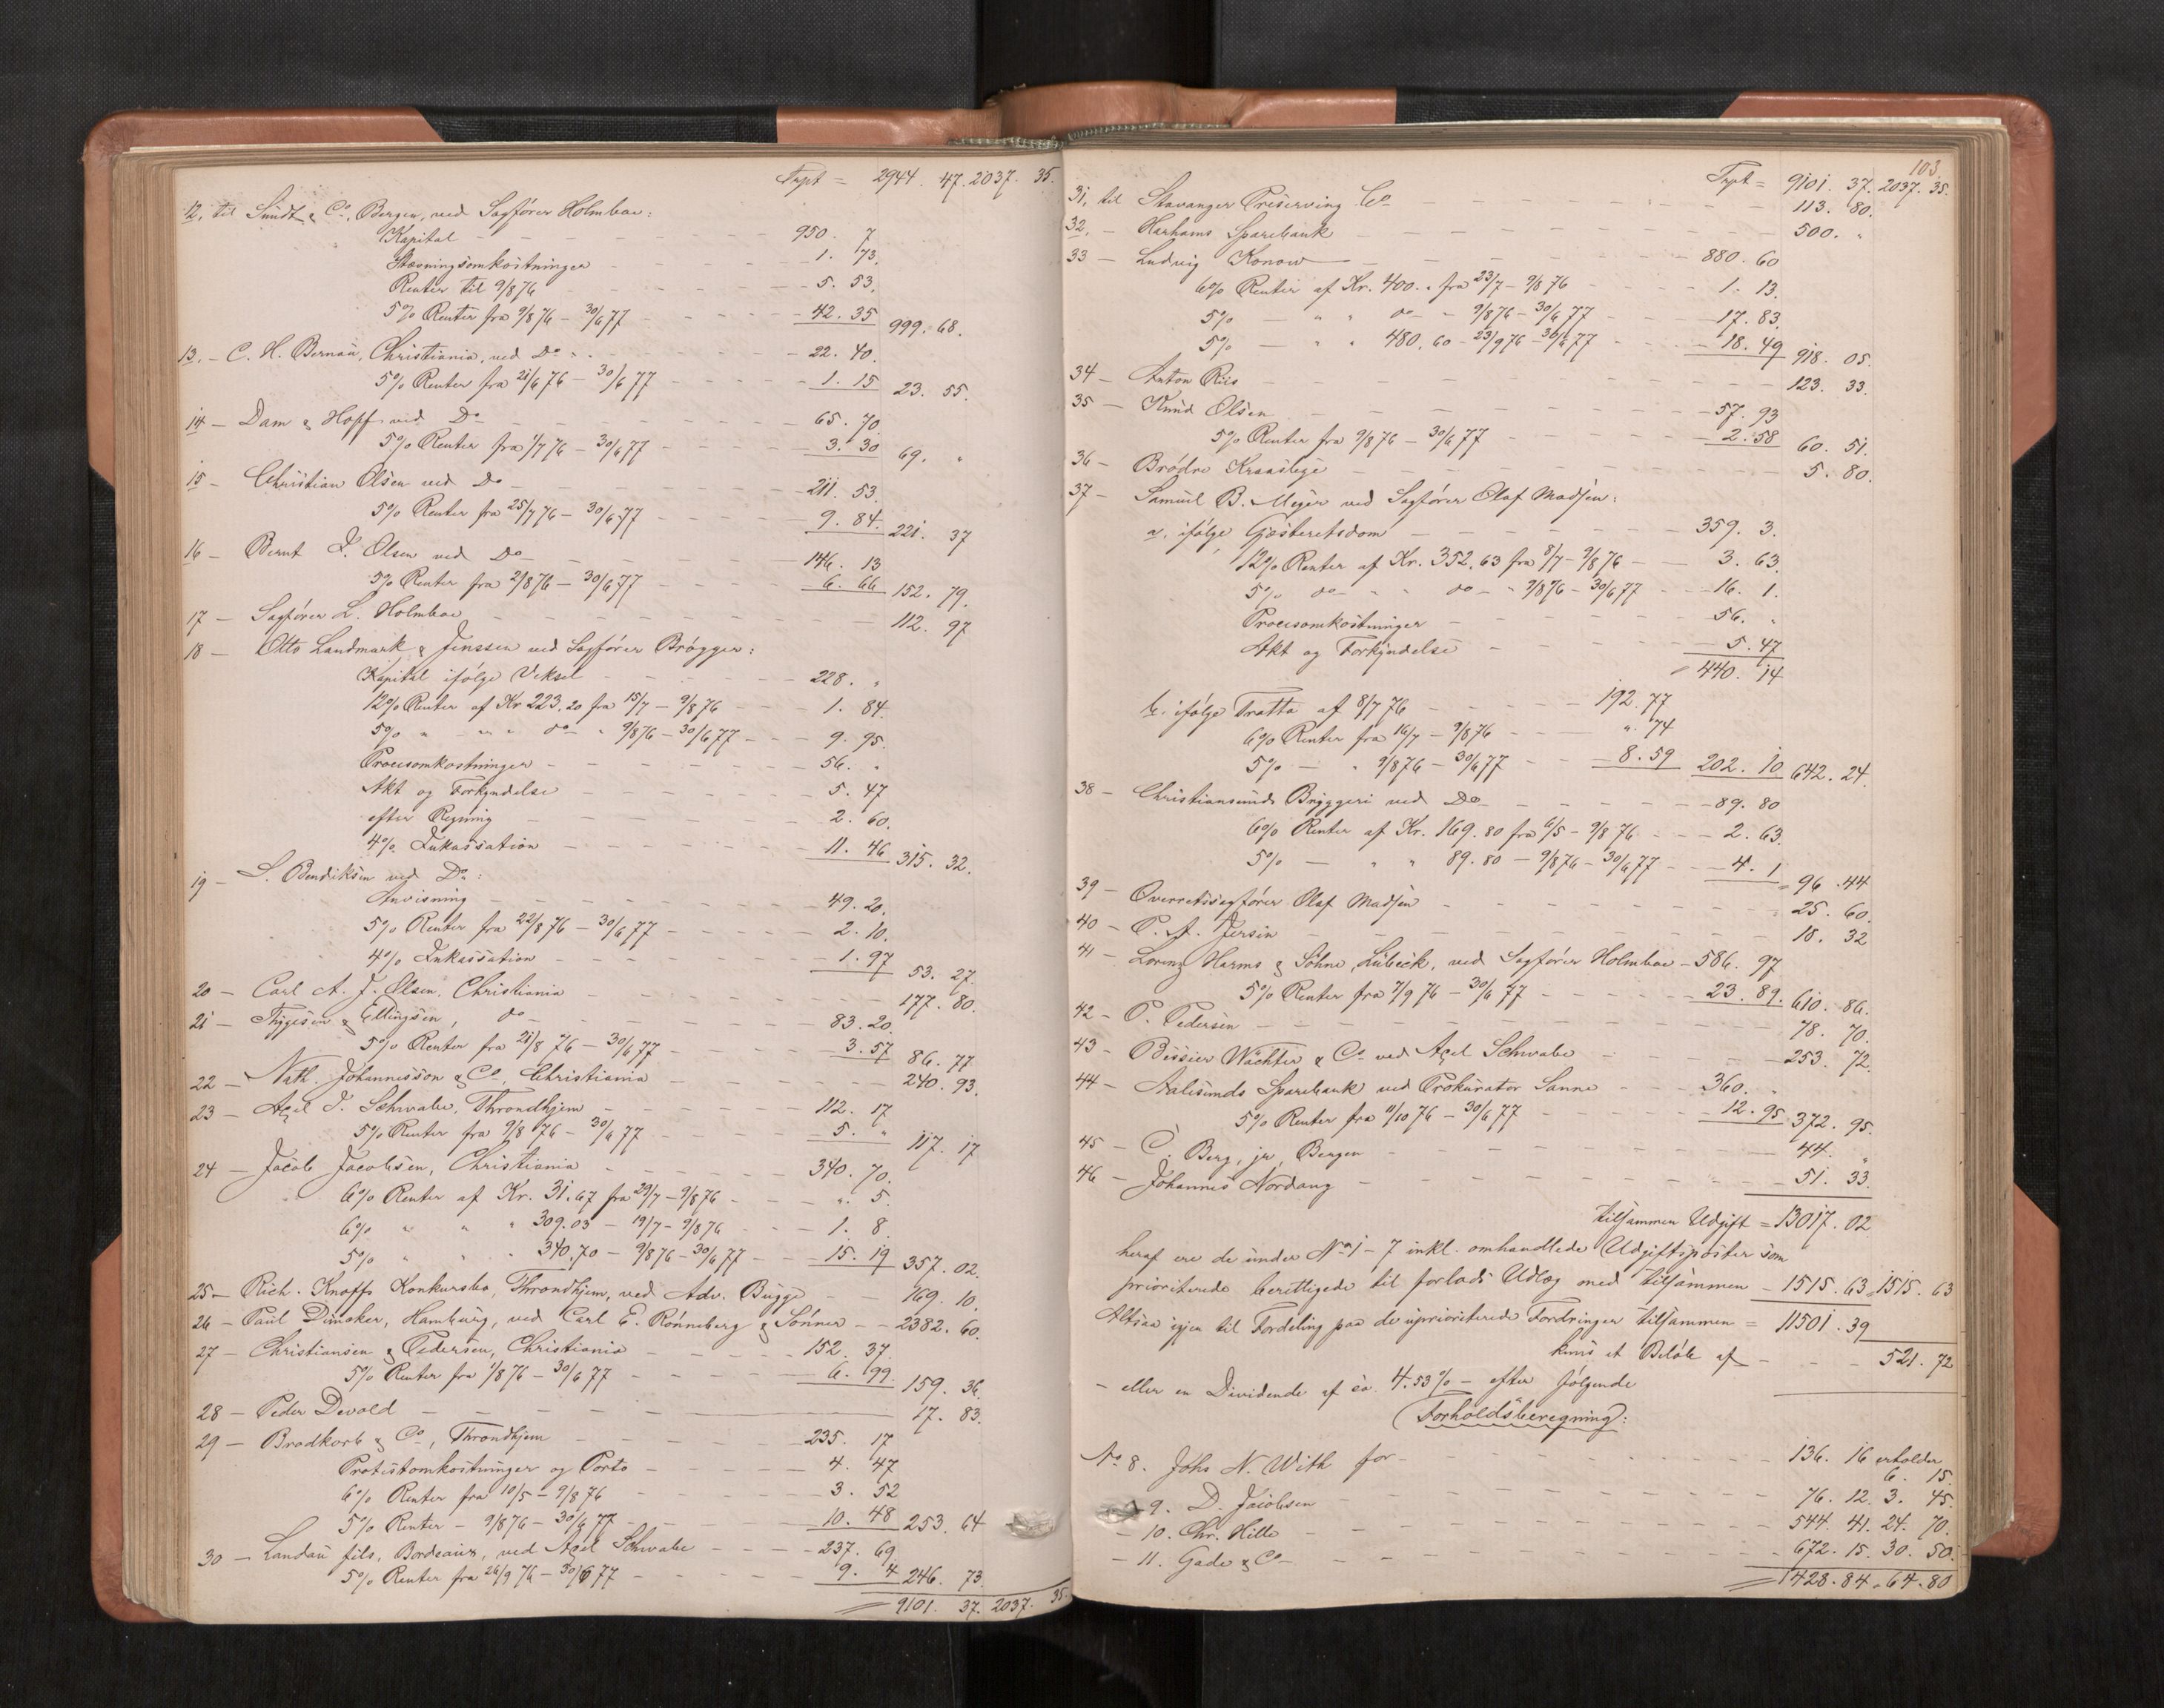 Trpt = 2944. 47. 2037. 35.
12, til Sundt & Co, Bergen, ved Sagfører Holmboe:
Kapital - - - 950. 7
Stævningsomkostninger - - 1. 73.
Renter til 9/8 76 - - 5. 53.
5% Renter fra 9/8 76 - 30/6 77 - - 42. 35 999. 68.
13, - C. H. Bernau, Christiania, ved Do - - 22. 40.
5% Renter fra 21/6 76 - 30/6 77 - - 1. 15 23. 55.
14 - Dam & Hopf ved Do - - 65. 70
5% Renter fra 1/7 76 - 30/6 77 - - 3. 30 69. "
15 - Christian Olsen ved Do - - 211. 53.
5% Renter fra 25/7 76 - 30/6 77 - - 9. 84. 221. 37
16 - Bernt I. Olsen ved Do - - 146. 13
5% Renter fra 2/8 76 - 30/6 77 - - 6. 66 152. 79.
17 - Sagfører L. Holmboe - - 112. 97
18 - Otto Landmark & Jenssen ved Sagfører Brøgger:
Kapital ifølge Veksel - - 228. "
12% Renter af Kr 223,20 fra 15/7 - 9/8 76 - - 1. 84.
5% " " " do " 9/8 76 - 30/6 77 - - 9. 95.
Procesomkostninger - - 56. "
Akt og Forkyndelse - - 5. 47
efter Regning - - 2. 60.
4% Inkassation - - 11. 46 315. 32.
19 - S. Bendiksen ved Do:
Anvisning - - 49. 20.
5% Renter fra 22/8 76 - 30/6 77 - - 2. 10.
4% Inkassation - - 1. 97 53. 27.
20 - Carl A. J. Olsen, Christiania - - 177. 80.
21 - Thygesen & Ellingsen, do - - 83. 20.
5% Renter fra 21/8 76 - 30/6 77 - - 3. 57 86. 77
22 - Nath. Johannesson & Co, Christiania - - 240. 93.
23 - Axel I. Schwabe, Throndhjem - - 112. 17
5% Renter fra 9/8 76 - 30/6 77 - - 5. " 117. 17
24 - Jacob Jacobsen, Christiania - - 340. 70.
6% Renter af Kr. 31.67 fra 29/7 - 9/8 76 - - ". 5.
6% " " " 309.03 - 19/7 - 9/8 76 - - 1. 8.
5% " " " 340.70 - 9/8 76 - 30/6 77 - - 15. 19 357. 02.
25 - Rich. Knoffs Konkursbo, Throndhjem, ved Adv. Bugge - - 169. 10.
26 - Paul Dumcker, Hamburg, ved Carl E. Rønneberg & Sønner - - 2382. 60.
27 - Christiansen & Pedersen, Christiania - - 152. 37.
5% Renter fra 1/8 76 - 30/6 77 - - 6. 99. 159. 36.
28 - Peder Devold - - 17. 83.
29 - Brodkorb & Co, Throndhjem - - 235. 17
Protestomkostninger og Porto - - 4. 47
6% Renter fra 10/5 - 9/8 76 - - 3. 52
5% Renter - 9/8 76 - 30/6 77 - - 10. 48 253. 64
30 - Landau fils, Bordeaux, ved Axel Schwabe - - 237. 69
5% Renter fra 26/9 76 - 30/6 77 - - 9. 4 246. 73.
9101. 37. 2037. 35.
103.
Trpt = 9101. 37. 2037. 35.
31, til Stavanger Preserving Co - - 113. 80.
32, - Harhams Sparebank - - 500. "
33 - Ludvig Konow - - 880. 60
6% Renter af Kr. 400. " fra 23/7 - 9/8 76 - - 1. 13.
5% - " " do - 9/8 76 - 30/6 77 - - 17. 83.
5% - " " 480,60 - 23/9 76 - 30/6 77 - - 18. 49 918. 05.
34 - Anton Riis - - 123. 33.
35 - Knud Olsen - - 57. 93
5% Renter fra 9/8 76 - 30/6 77 - - 2. 58 60. 51.
36 - Brødre Kraaslege - - 5. 80.
37 - Samuel B. Meyer ved Sagfører Olaf Madsen:
a, ifølge Gjesteretsdom - - 359. 3.
12% Renter af Kr. 352,63 fra 8/7 - 9/8 76 - - 3. 63.
5% do - " " do - " 9/8 76 - 30/6 77 - - 16. 1.
Procesomkostninger - - 56. "
Akt og Forkyndelse - - 5. 47
= 440. 14
b, ifølge Tratta af 8/7 76 - - 192. 77
6% Renter fra 16/7 - 9/8 76 - - ". 74
5% - " 9/8 76 - 30/6 77 - - 8. 59 202. 10 642. 24.
38 - Christiansunds Bryggeri ved Do - - 89. 80
6% Renter af Kr. 169.80 fra 6/5 - 9/8 76 - - 2. 63.
5% - " " 89.80 - 9/8 76 - 30/6 77 - - 4. 1 = 96. 44
39 - Overretssagfører Olaf Madsen - - 25. 60.
40 - P. A. Jersin - - 18. 32
41 - Lorenz Harms & Söhne, Lübeck, ved Sagfører Holmboe - 586. 97
5% Renter fra 7/9 76 - 30/6 77 - - 23. 89. 610. 86.
42 - P. Pedersen - - 78. 70.
43 - Bissier Wächter & Co ved Axel Schwabe - - 253. 72.
44 - Aalesunds Sparebank ved Prokurator Sanne - - 360. "
5% Renter fra 11/10 76 - 30/6 77 - - 12. 95 372. 95.
45 - C. Berg, jr, Bergen - - 44. "
46 - Johannes Nordang - - 51. 33.
tilsammen Udgift = 13017. 02
heraf ere de under No 1 - 7 inkl. omhandlede Udgiftsposter som
prioriterede berettigede til forlods Udlæg med tilsammen - 1515. 63. 1515. 63
Altsaa igjen til Fordeling paa de uprioriterede Fordringer tilsammen = 11501. 39
kuns et Beløb af - - - 521. 72
- eller en Dividende af ca. 4.53% - efter følgende
Forholdsberegning:
No 8. Johs N. With for - - 136. 16 erholder
6. 15.
- 9. D. Jacobsen - - 76. 12. 3. 45.
- 10. Chr. Hille - - 544. 41. 24. 70.
- 11. Gade & Co - - 672. 15. 30. 50.
1428. 84. 64. 80